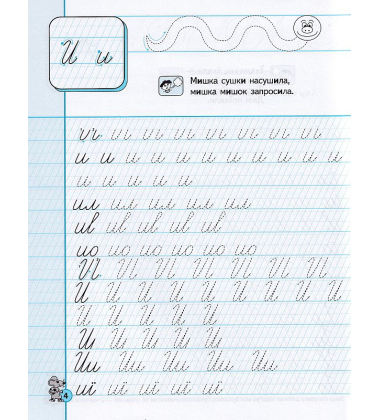 И и
Мишка сушки насушила,
мишка мишок запросила.
и и и и и и и и и
и и и и и и и и и и и
и и и и и
ил ил ил ил ил
ив ив ив ив ив
ио ио ио ио ио ио
И И И И И И И
И И И И И И И И И
И И И И И
И И И И И
Ии Ии Ии Ии Ии
4